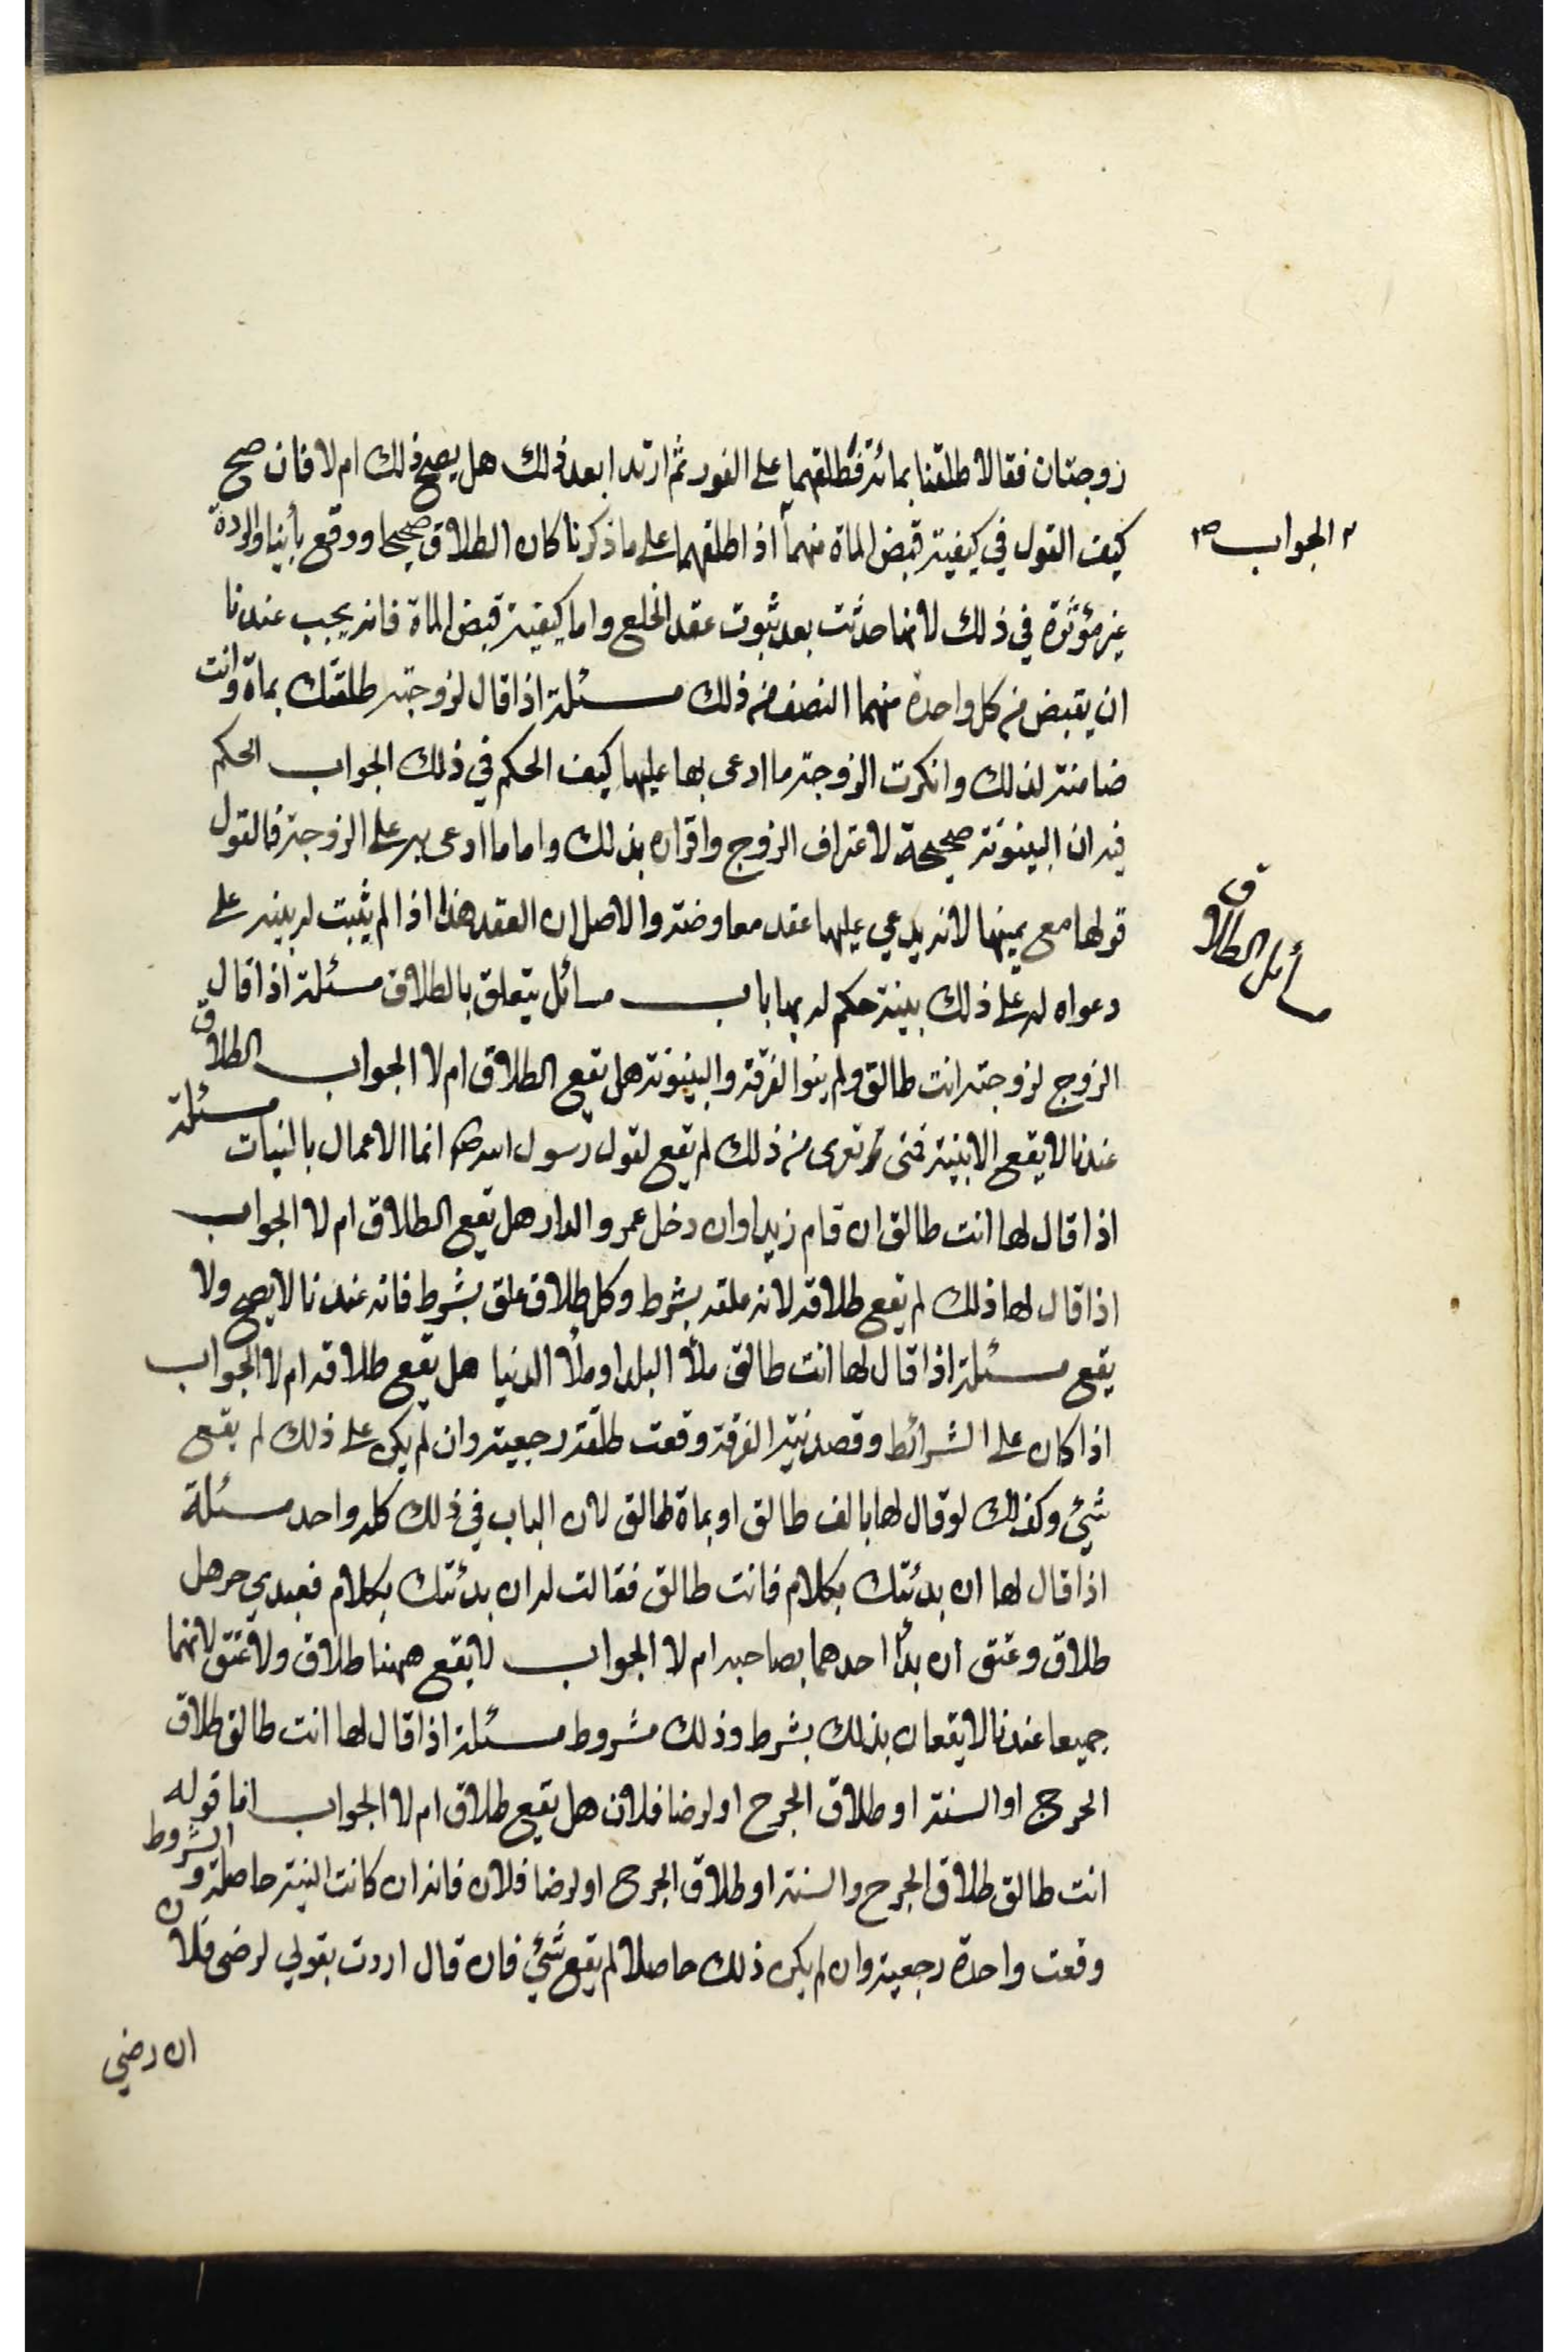 زوجتان فقالا طلقنا بمائة فطلقهما على الفور ثم ارتدا بعد ذلك هل يصح ذلك ام لا فان صح
كيف القول في كيفية قبض الماة منهما اذا طلقهما على ما ذكرنا كان الطلاق صحيحا ووقع بأينا والردة
الجواب صح
غير مؤثرة في ذلك لانها حدثت بعد ثبوت عقد الخلع واما كيفية قبض الماة فانه يجب عندنا
ان يقبض من كل واحدة منهما النصف من ذلك مسئلة اذا قال لزوجته طلقتك بماة وانت
ضامنة لذلك وانكرت الزوجة ما ادعى بها عليها كيف الحكم في ذلك الجواب الحكم
فيه ان البينونة صحيحة لاعتراف الزوج واقراره بذلك واما ما ادعى به على الزوجة فالقول
قولها مع يمينها لانه يدعي عليها عقد معاوضة والاصل ان العقد هذا اذا لم يثبت له بينه على
مسائل الطلاق
دعواه له على ذلك بينة حكم له بها باب مسائل يتعلق بالطلاق مسئلة اذا قال
الزوج لزوجته انت طالق ولم ينوا الفرقة والبينونة هل تقع الطلاق ام لا الجواب الطلاق
عندنا لا يقع الا بنية فتى تعرى من ذلك لم يقع لقول رسول الله ص انما الاعمال بالنيات مسئلة
اذا قال لها انت طالق ان قام زيد او ان دخل عمرو الدار هل تقع الطلاق ام لا الجواب
اذا قال لها ذلك لم يقع طلاقه لانه علقه بشرط وكل طلاق علق بشرط فانه عندنا لا يصح ولا
يقع مسئلة اذا قال لها انت طالق ملأ البلد او ملأ الدنيا هل يقع طلاقه ام لا الجواب
اذا كان على الشرائط وقصد نية الفرقة وقعت طلقة رجعية وان لم يكن على ذلك لم يقع
شيئ وكذلك لو قال لها بالف طالق او بماة طالق لان الباب في ذلك كله واحد مسئلة
اذا قال لها ان بدئتك بكلام فانت طالق فقالت له ان بدئتك بكلام فعبدي حر هل
طلاق وعتق ان بدأ احدهما بصاحبه ام لا الجواب لا يقع ههنا طلاق ولا عتق لانهما
جميعا عندنا لا يقعان بذلك بشرط وذلك مشروط مسئلة اذا قال لها انت طالق طلاق
الحرج او السنة او طلاق الجرح او لرضا فلان هل يقع طلاق ام لا الجواب اما قوله
انت طالق طلاق الجرح والسنة او طلاق الجرح او لرضا فلان فانه ان كانت النية حاصلة والشروط
وقعت واحدة رجعية وان لم يكن ذلك حاصلا لم يقع شيئ فان قال اردت بقولي لرضى فلان
ان رضي